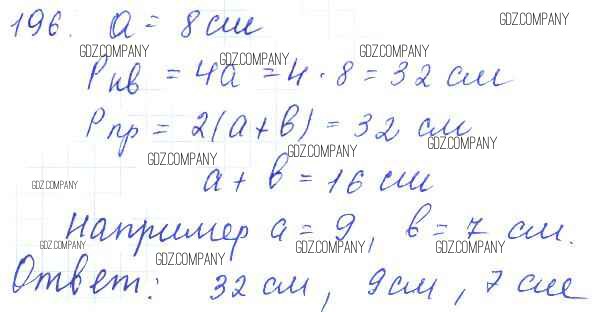 196. a = 8 см
GDZ.COMPANY
GDZ.COMPANY GDZ.COMPANY
Pкв = 4a = 4 · 8 = 32 см
GDZ.COMPANY GDZ.COMPANY GDZ.COMPANY
Pпр = 2(a + b) = 32 см
GDZ.COMPANY GDZ.COMPANY GDZ.COMPANY
a + b = 16 см
GDZ.COMPANY
Например a = 9, b = 7 см.
GDZ.COMPANY GDZ.COMPANY GDZ.COMPANY GDZ.COMPANY
Ответ: 32 см, 9 см, 7 см